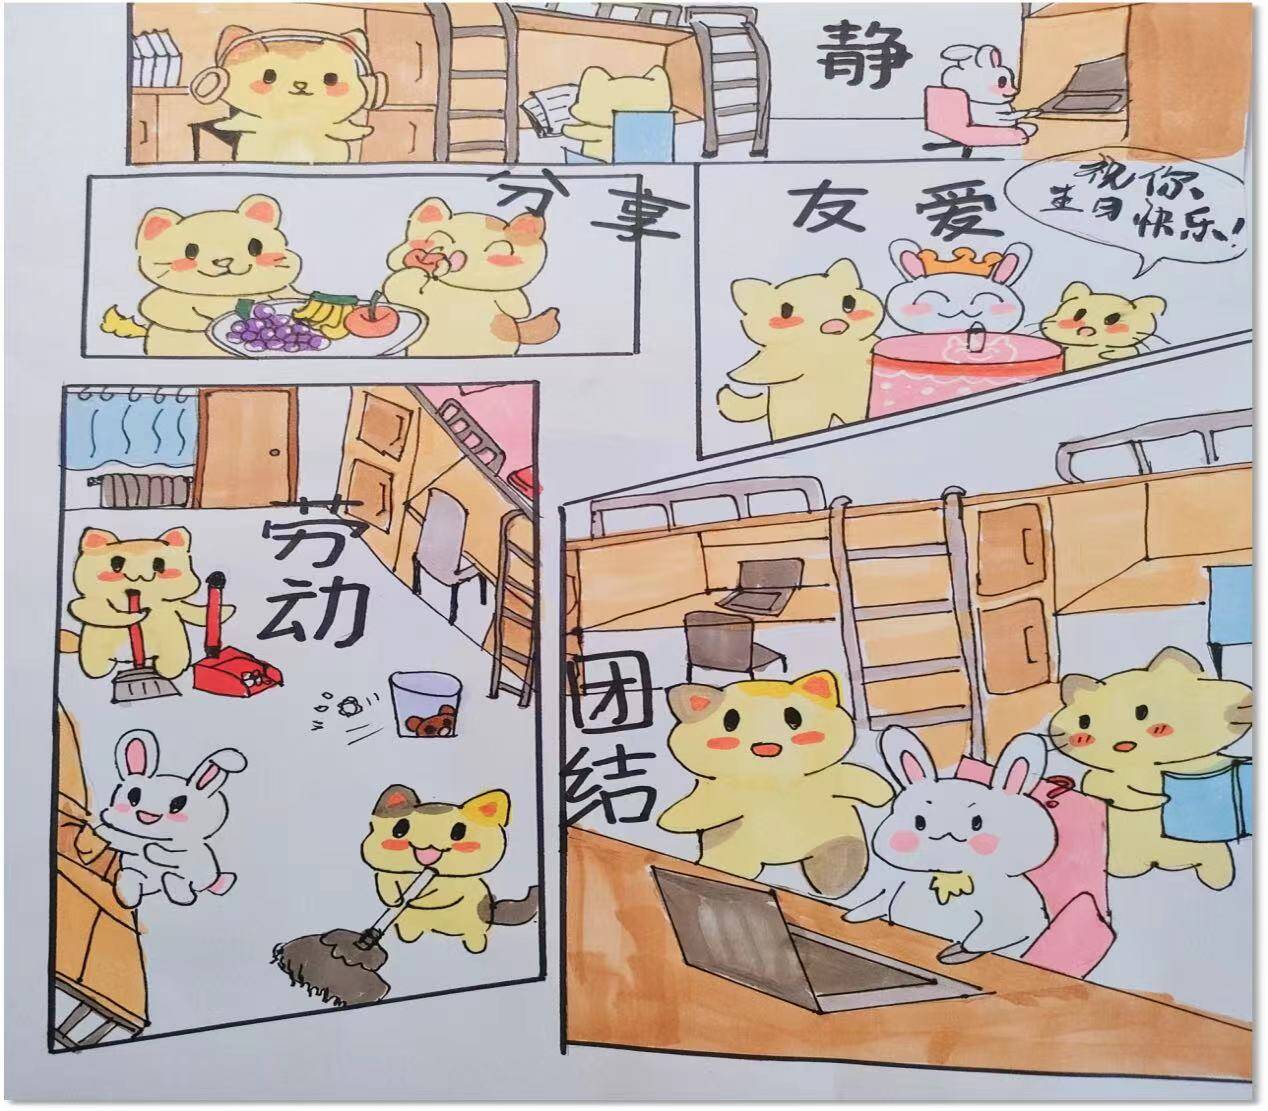 静
分享
友爱
祝你
生日快乐!
劳动
团结